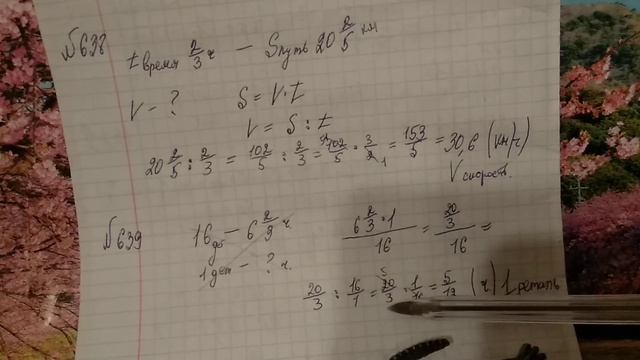 №638
t время 2/3 ч — S путь 20 2/5 км
V - ? S = V · t
V = S : t
20 2/5 : 2/3 = 102/5 : 2/3 = 102/5 · 3/2 = 153/5 = 30,6 (км/ч)
V скорость
№639
16 — 6 2/3 ч
1 дет — ? ч.
6 2/3 · 1 / 16 = 20/3 / 16 =
20/3 : 16/1 = 20/3 · 1/16 = 5/12 (ч) 1 деталь